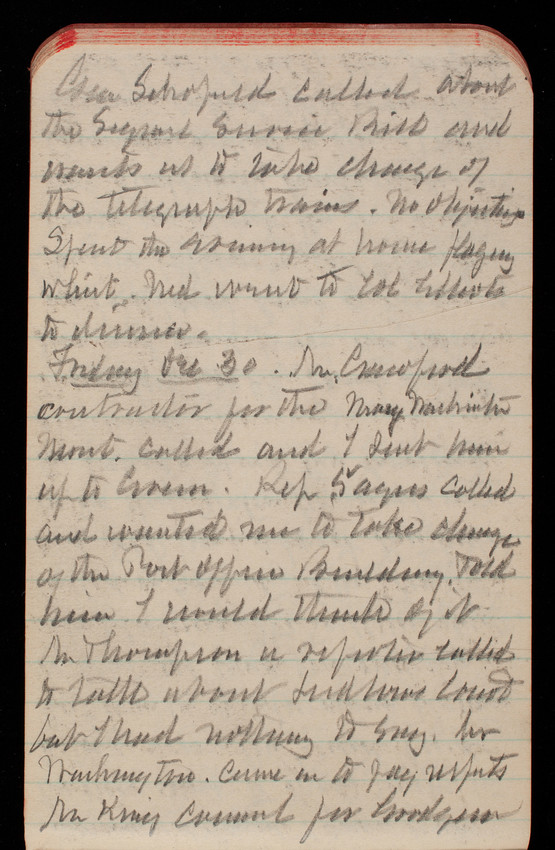 Schofield called about
the Signal Service Bill and
wants us to take charge of
the telegraph trains. No objection
Spent the evening at home playing
whist. Ned went to Col Elliots
to dinner.
Friday Dec 30. Mr. Crawford
contractor for the Mary Washington
Mont. called and I sent him
up to Green. Rep Sayers called
and wanted me to take charge
of the Post Office Building. Told
him I would think of it
Mr Thompson a reporter called
to talk about Ludlows Court
but I had nothing to say. Mr
Washington. came in to pay respects
Mr King counsel for